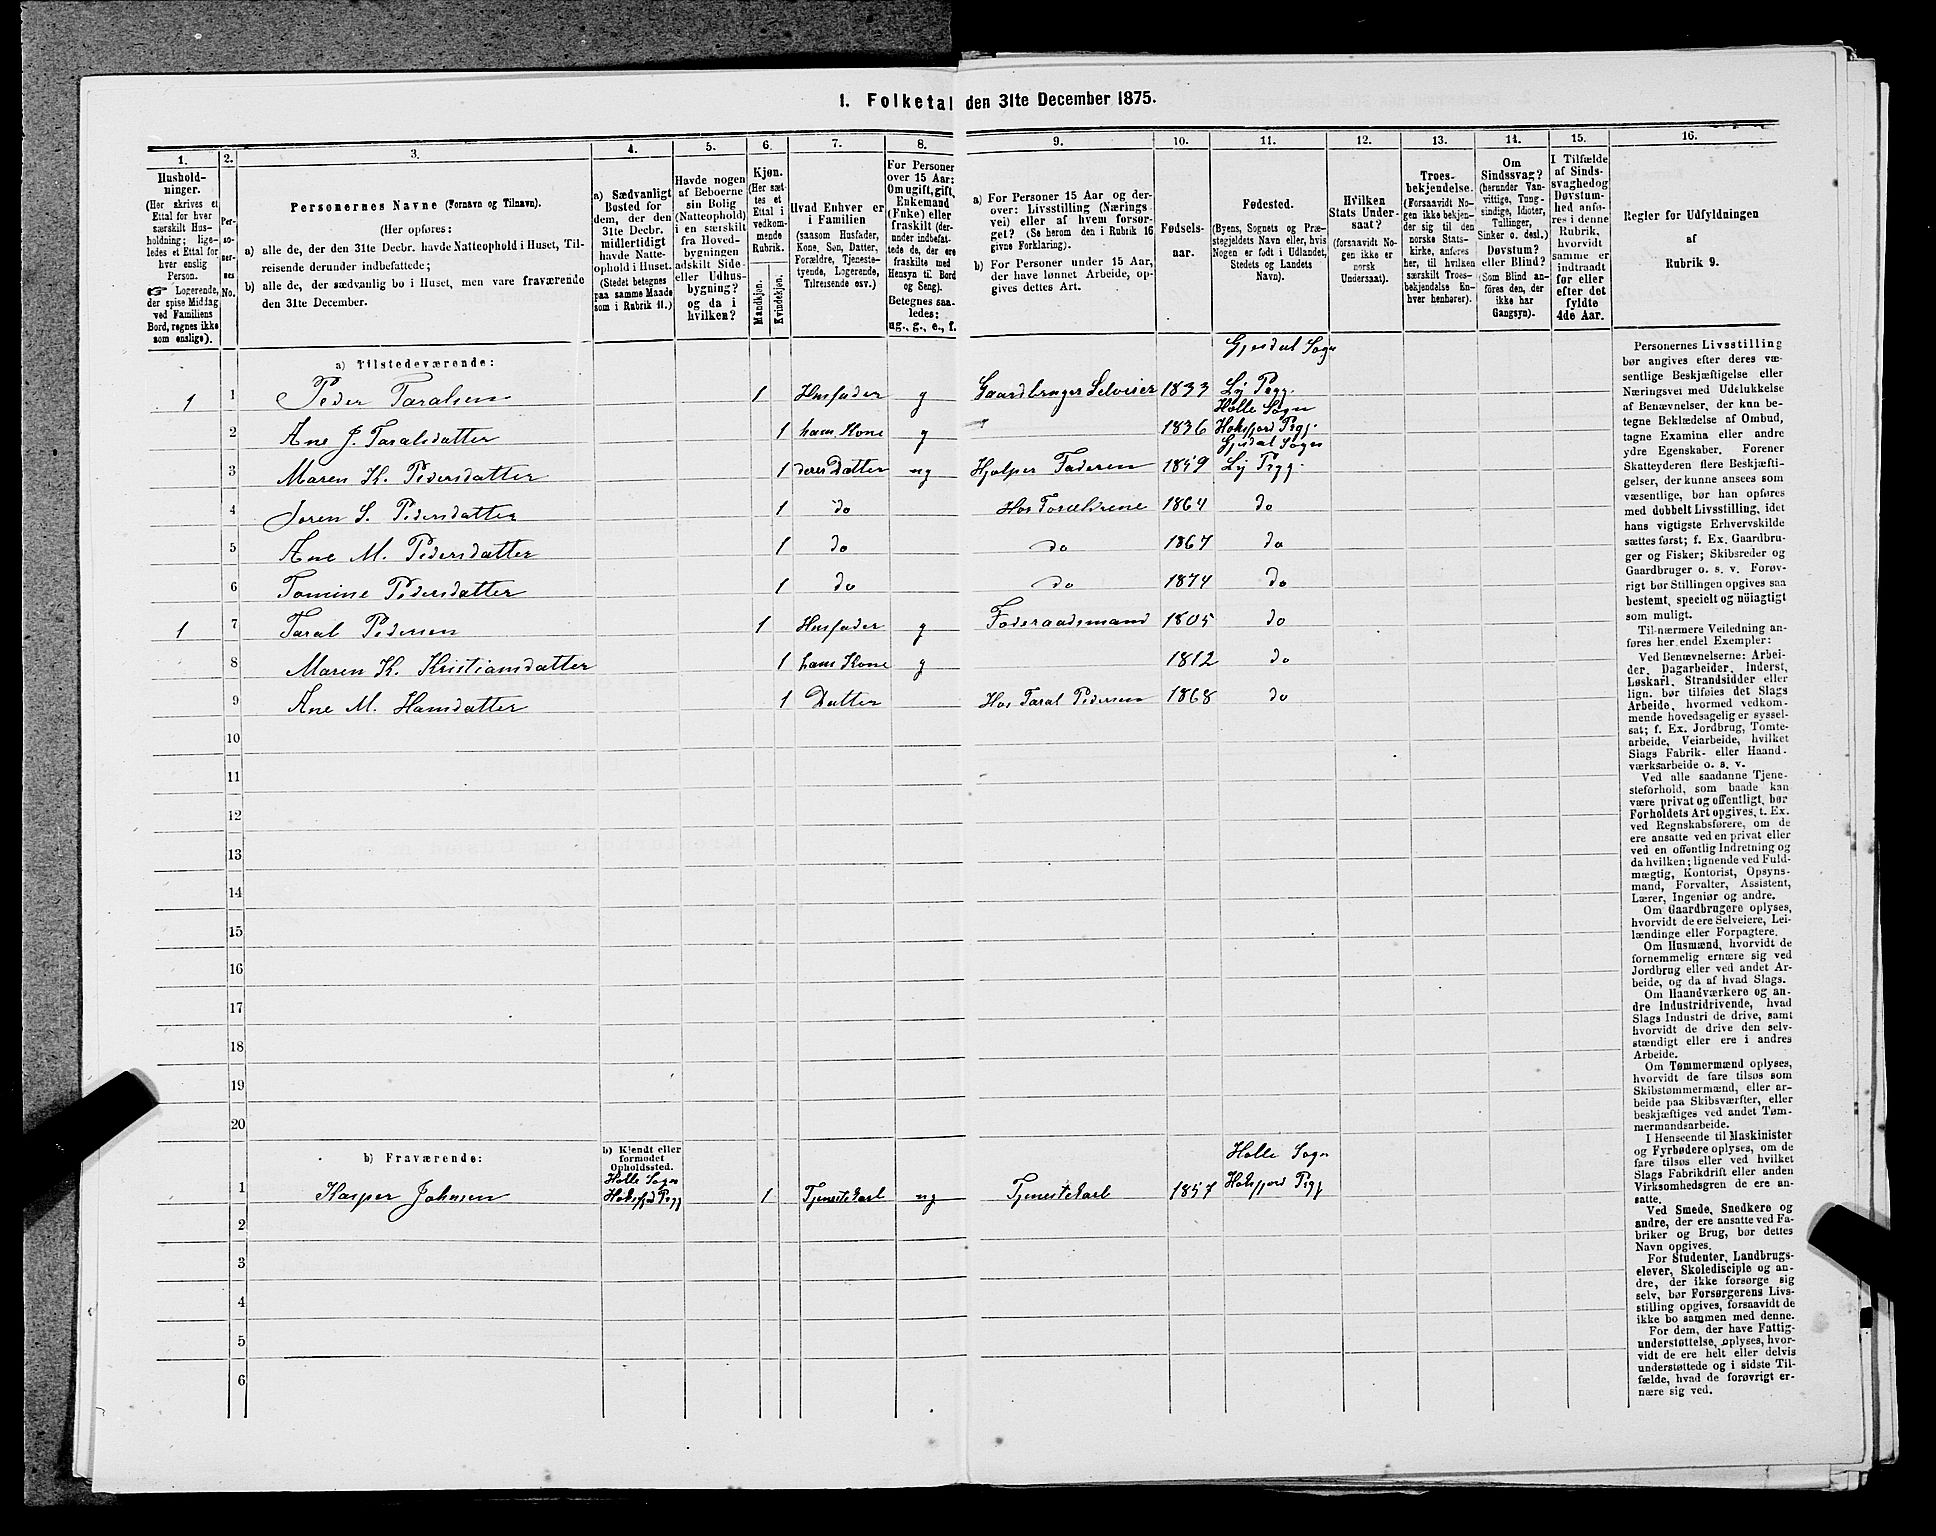 1. Folketal den 31te December 1875.
1.
Hushold-
ninger.
(Her skrives et
Ettal for hver
særskilt Hus-
holdning; lige-
ledes et Ettal for
hver enslig
Person.
☞ Logerende,
der spise Middag
ved Familiens
Bord, regnes ikke
som enslige).
2.
Per-
so-
ner-
nes
No.
3.
Personernes Navne (Fornavn og Tilnavn).
(Her opføres:
a) alle de, der den 31te Decbr. havde Natteophold i Huset, Til-
reisende derunder indbefattede;
b) alle de, der sædvanlig bo i Huset, men vare fraværende
den 31te December.
4.
a) Sædvanligt
Bosted for
dem, der den
31te Decbr.
midlertidigt
havde Natte-
ophold i Huset.
(Stedet betegnes
paa samme Maade
som i Rubrik 11.)
5.
Havde nogen
af Beboerne
sin Bolig
(Natteophold)
i en særskilt
fra Hoved-
bygningen
adskilt Side-
eller Udhus-
bygning?
og da i
hvilken?
6.
Kjøn.
(Her sæt-
tes et
Ettal i
vedkom-
mende
Rubrik.
Mandkjøn.
Kvindekjøn.
7.
Hvad Enhver er
i Familien
(saasom Husfader,
Kone, Søn, Datter,
Forældre, Tjeneste-
tyende, Logerende,
Tilreisende osv.)
8.
For Personer
over 15 Aar:
Om ugift, gift,
Enkemand
(Enke) eller
fraskilt (der-
under indbefat-
tede de, der ere
fraskilte med
Hensyn til Bord
og Seng).
Betegnes saa-
ledes:
ug., g., e., f.
9.
a) For Personer 15 Aar og der-
over: Livsstilling (Nærings-
vei) eller af hvem forsør-
get? (Se herom den i Rubrik 16
givne Forklaring).
b) For Personer under 15 Aar,
der have lønnet Arbeide, op-
gives dettes Art.
10.
Fødsels-
aar.
11.
Fødested.
(Byens, Sognets og Præ-
stegjeldets Navn eller, hvis
Nogen er født i Udlandet,
Stedets og Landets
Navn).
12.
Hvilken
Stats Under-
saat?
(forsaavidt No-
gen ikke er
norsk
Undersaat).
13.
Troes-
bekjendelse.
(Forsaavidt No-
gen ikke bekjen-
der sig til den
norske Stats-
kirke, anføres
her, til hvilken
særskilt Troes-
bekjendelse En-
hver henhører).
14.
Om
Sindssvag?
(herunder Van-
vittige, Tung-
sindige, Idioter,
Tullinger,
Sinker o. desl.)
Døvstum?
eller Blind?
(Som Blind an-
føres den, der
ikke har
Gangsyn).
15.
I Tilfælde
af Sinds-
svaghed og
Døvstum-
hed anfø-
res i denne
Rubrik,
hvorvidt
samme er
indtraadt
før eller
efter det
fyldte
4de Aar.
16.
Regler for Udfyldningen
af
Rubrik 9.
a) Tilstedeværende:
Gjesdal Sogn
1 1 Peder Taralsen 1 Husfader g Gaardbruger Selveier 1833 Ly Pgg.
Holle Sogn
2 Ane J. Taralsdatter 1 hans Kone g " 1836 Høksfjord Pgj.
Gjesdal Sogn
3 Maren K. Pedersdatter 1 deres Datter ug Hjælper Faderen 1859 Ly Pgg.
4 Joren S. Pedersdatter 1 do Hos Forældrene 1864 do
5 Ane M. Pedersdatter 1 do do 1867 do
6 Tomine Pedersdatter 1 do do 1874 do
1 7 Taral Pedersen 1 Husfader g Føderaadsmand 1805 do
8 Maren K. Kristiansdatter 1 hans Kone g 1812 do
9 Ane M. Hansdatter 1 Datter Hos Taral Pedersen 1868 do
10
11
12
13
14
15
16
17
18
19
20
b) Fraværende:
b) Kjendt eller
formodet
Opholdssted.
Holle Sogn
Holle Sogn
1 Kasper Johnsen Høksfjd Pgg 1 Tjenestekarl ug Tjenestekarl 1857 Høksfjord Pgj
2
3
4
5
6
Personernes Livsstilling
bør angives efter deres væ-
sentlige Beskjæftigelse eller
Næringsvei med Udelukkelse
af Benævnelser, der kun be-
tegne Beklædelse af Ombud,
tagne Examina eller andre
ydre Egenskaber. Forener
Skatteyderen flere Beskjæfti-
gelser, der kunne ansees som
væsentlige, bør han opføres
med dobbelt Livsstilling, idet
hans vigtigste Erhvervskilde
sættes først; f. Ex. Gaardbru-
ger og Fisker; Skibsreder og
Gaardbruger o. s. v. Forøv-
rigt bør Stillingen opgives saa
bestemt, specielt og nøiagtigt
som muligt.
Til nærmere Veiledning an-
føres her endel Exempler:
Ved Benævnelserne: Arbei-
der, Dagarbeider, Inderst,
Løskarl, Strandsidder eller
lign. bør tilføies det Slags
Arbeide, hvormed vedkom-
mende hovedsagelig er syssel-
sat; f. Ex. Jordbrug, Tomte-
arbeide, Veiarbeide, hvilket
Slags Fabrik- eller Haand-
værksarbeide o. s. v.
Ved alle saadanne Tjene-
steforhold, som baade kan
være privat og offentligt, bør
Forholdets Art opgives, t. Ex.
ved Regnskabsførere, om de
ere ansatte ved en privat eller
ved en offentlig Indretning og
da hvilken; lignende ved Fuld-
mægtig, Kontorist, Opsyns-
mand, Forvalter, Assistent,
Lærer, Ingeniør og andre.
Om Gaardbrugere oplyses,
hvorvidt de ere Selveiere, Lei-
lændinge eller Forpagtere.
Om Husmænd, hvorvidt de
fornemmelig ernære sig ved
Jordbrug eller ved andet Ar-
beide, og da af hvad Slags.
Om Haandværkere og an-
dre Industridrivende, hvad
Slags Industri de drive, samt
hvorvidt de drive den selv-
stændigt eller ere i andres
Arbeide.
Om Tømmermænd oplyses,
hvorvidt de fare tilsøs som
Skibstømmermænd, eller ar-
beide paa Skibsværfter, eller
beskjæftiges ved andet Tøm-
mermandsarbeide.
I Henseende til Maskinister
og Fyrbødere oplyses, om de
fare tilsøs eller ved hvilket
Slags Fabrikdrift eller anden
Virksomhedsgren de ere an-
satte.
Ved Smede, Snedkere og
andre, der ere ansatte ved Fa-
briker og Brug, bør dettes
Navn opgives.
For Studenter, Landbrugs-
elever, Skoledisciple og an-
dre, der ikke forsørge sig
selv, bør Forsørgerens Livs-
stilling opgives, forsaavidt de
ikke bo sammen med denne.
For dem, der have Fattig-
understøttelse, oplyses, hvor-
vidt de ere helt eller delvis
understøttede og i sidste Til-
fælde, hvad de forøvrigt er-
nære sig ved.